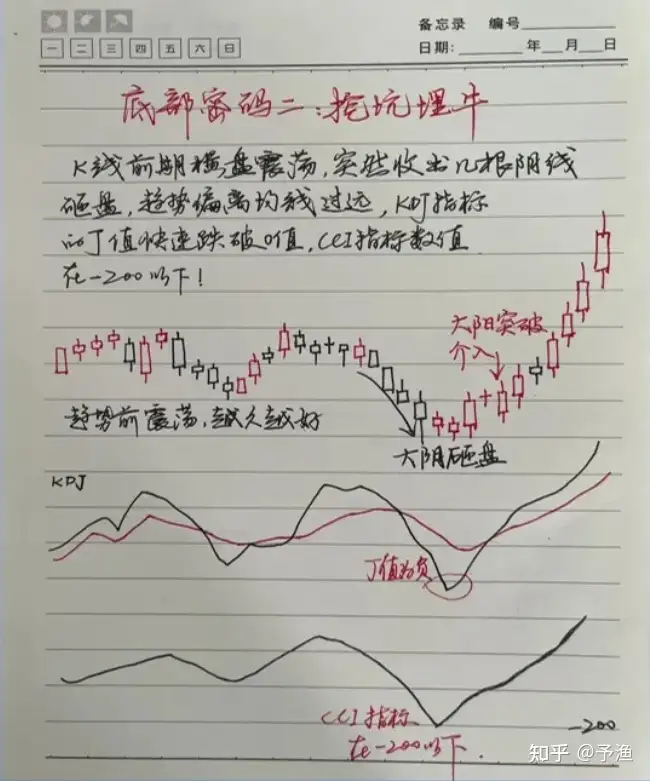 备忘录 编号
一 二 三 四 五 六 日
日期: 年 月 日
底部密码二:挖坑埋牛
K线前期横盘震荡,突然收出几根阴线
砸盘,趋势偏离均线过远,KDJ指标
的J值快速跌破0值,CCI指标数值
在-200以下!
大阳突破
介入
趋势前震荡,越久越好
大阴砸盘
KDJ
J值为负
CCI指标
在-200以下.
-200
知乎 @予渔